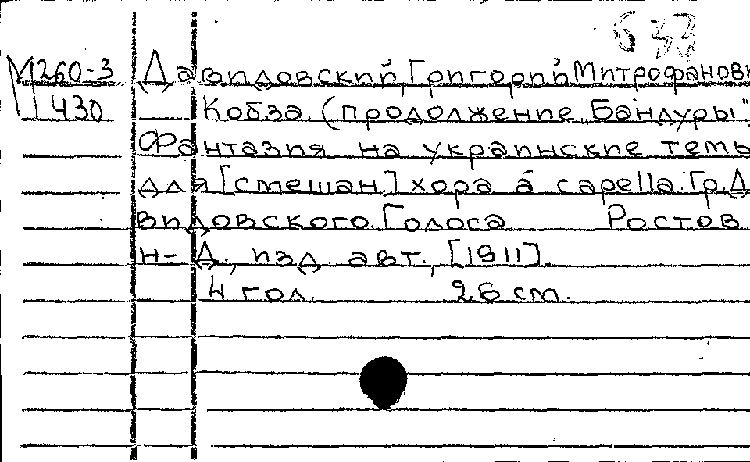 М260-3 Давидовский, Григорий Митрофанови
430 Кобза. (продолжение „Бандуры"
Фантазия на украинские темы
для [смешан.] хора á capella. Гр. Да
видовского. Голоса Ростов
н-Д., изд. авт., [1911].
4 гол. 26 cm.